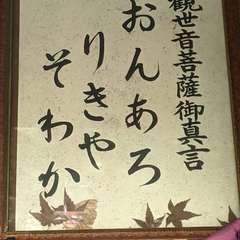 観世音菩薩御真言
おんあろ
りきや
そわか